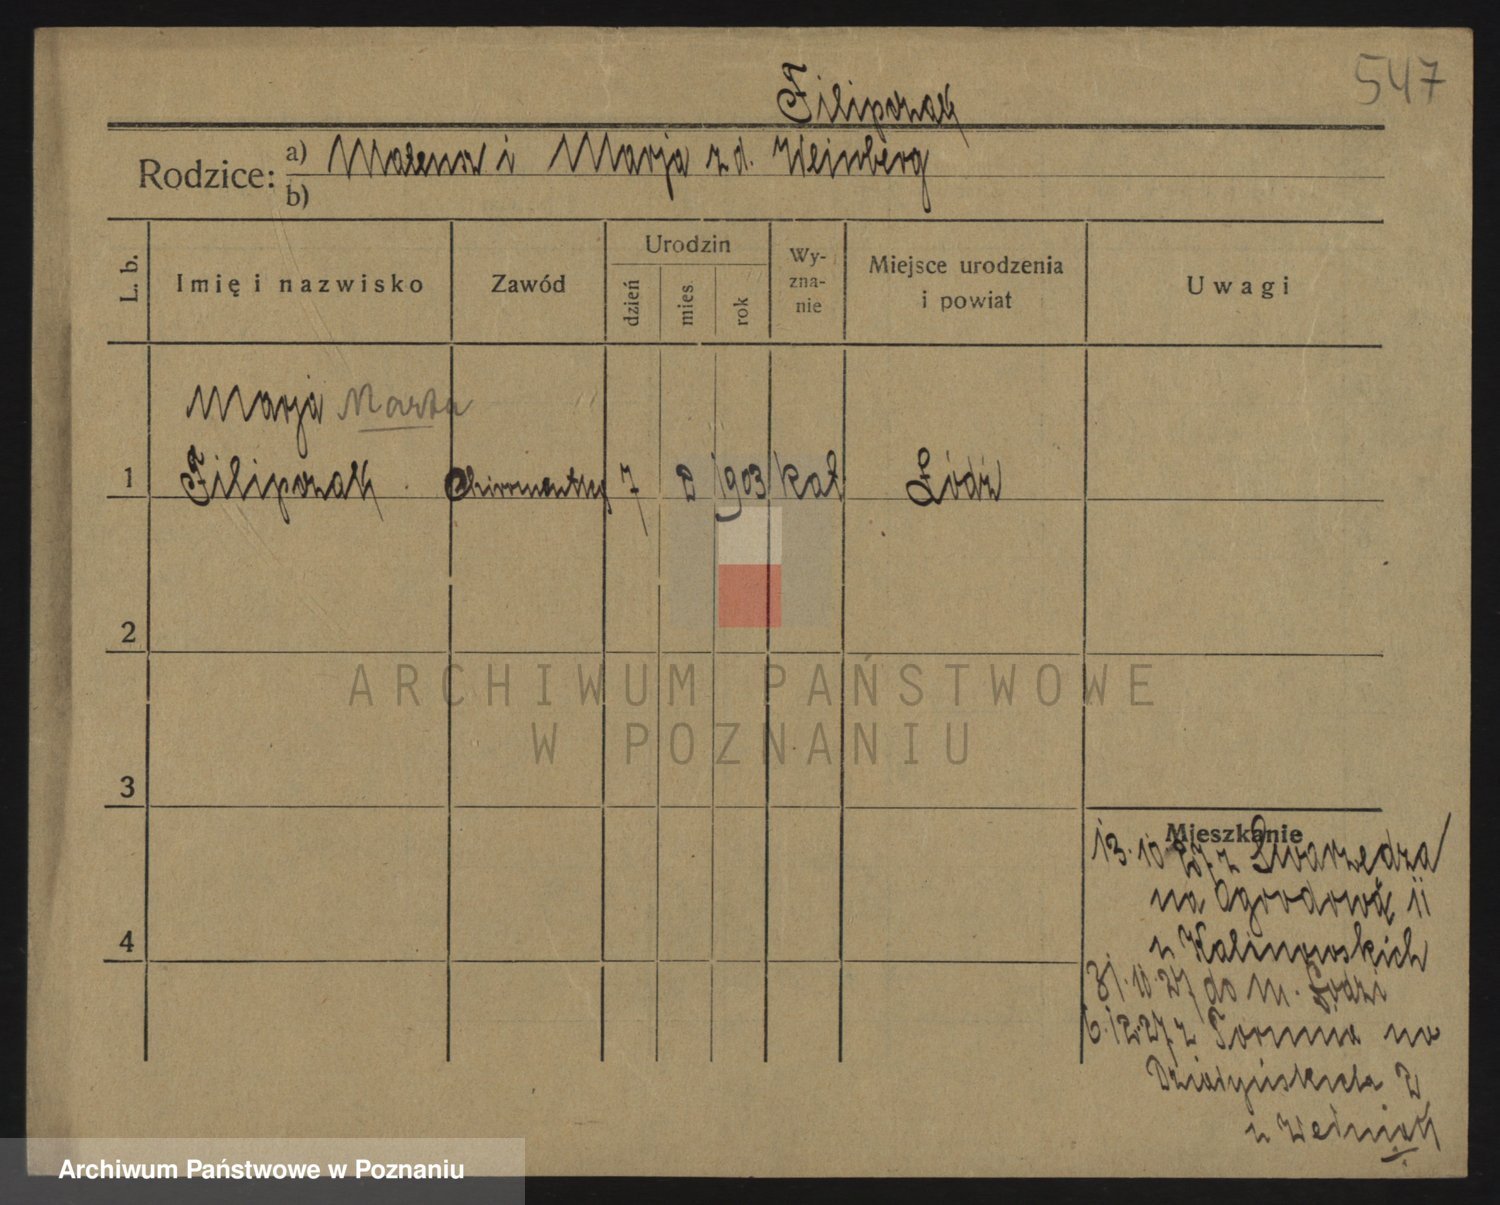 547
Filipczak
Rodzice: a) i Marja z d. Weinberg
b)
L. b.
Imię i nazwisko
Zawód
Urodzin
dzień
mies
rok
Wy-
zna-
nie
Miejsce urodzenia
i powiat
Uwagi
Marja Marta
1 Filipczak 7 8 1903 kat Łódź
2
3
4
ARCHIWUM PAŃSTWOWE
W POZNANIU
Mieszkanie
13.10.27 z Swarzędza
na Ogrodową 11
u Kalinowskich
31.10.27 do m. Łodzi
6.12.27 z Torunia na
Działyńskich 2
u
Archiwum Państwowe w Poznaniu